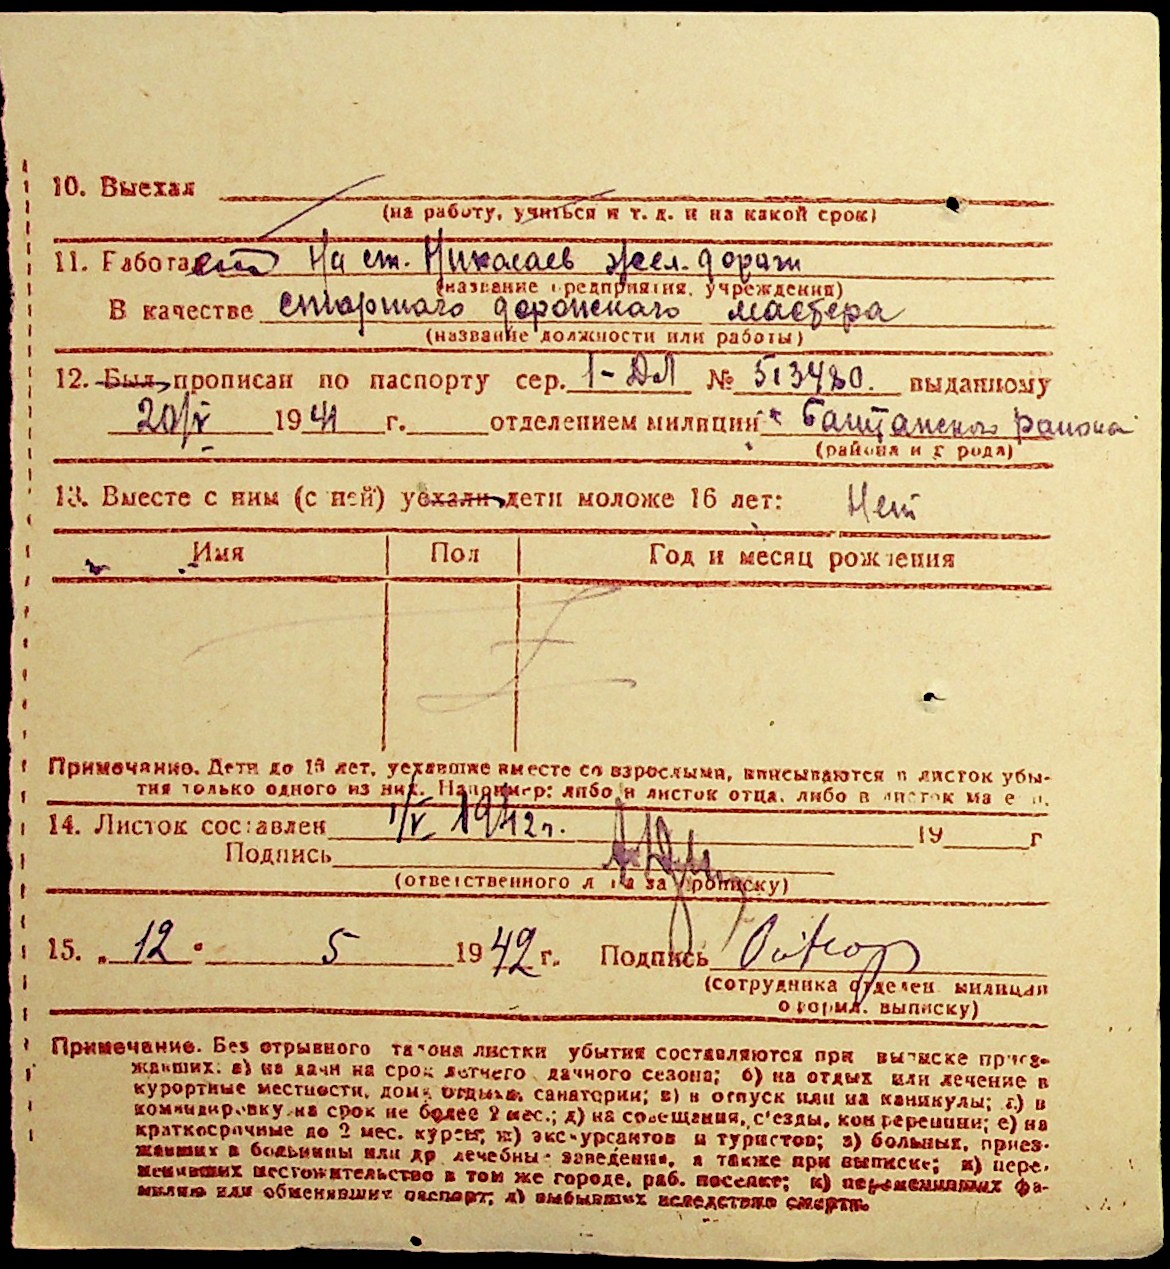 10. Выехал
(на работу, учиться и т. д. и на какой срок)
11. Работает На ст. Николаев жел. дороги
(название предприятия, учреждения)
В качестве старшого дорожного мастера
(название должности или работы)
12. Был прописан по паспорту сер. 1-ДЛ № 513480. выданному
20/V 1941 г. отделением милиции Баштанского района
(района и города)
13. Вместе с ним (с ней) уехали дети моложе 16 лет: Нет
Имя Пол Год и месяц рождения
Примечание. Дети до 16 лет, уехавшие вместе со взрослыми, вписываются в листок убы-
тия только одного из них. Например: либо в листок отца, либо в листок матери.
14. Листок составлен 1/V 1942 г. 19 г
Подпись
(ответственного лица за прописку)
15. „12" 5 1942 г. Подпись
(сотрудника отделен. милиции
оформл. выписку)
Примечание. Без отрывного талона листки убытия составляются при выписке приез-
жавших: а) на дачи на срок летнего дачного сезона; б) на отдых или лечение в
курортные местности, дома отдыха, санатории; в) в отпуск или на каникулы; г) в
командировку на срок не более 2 мес.; д) на совещания, съезды, конференции; е) на
краткосрочные до 2 мес. курсы; ж) экскурсантов и туристов; з) больных, приез-
жавших в больницы или др лечебные заведения, а также при выписке; и) пере-
менивших местожительство в том же городе, раб. поселке; к) переменивших фа-
милию или обменявших паспорт; л) выбывших вследствие смерти.